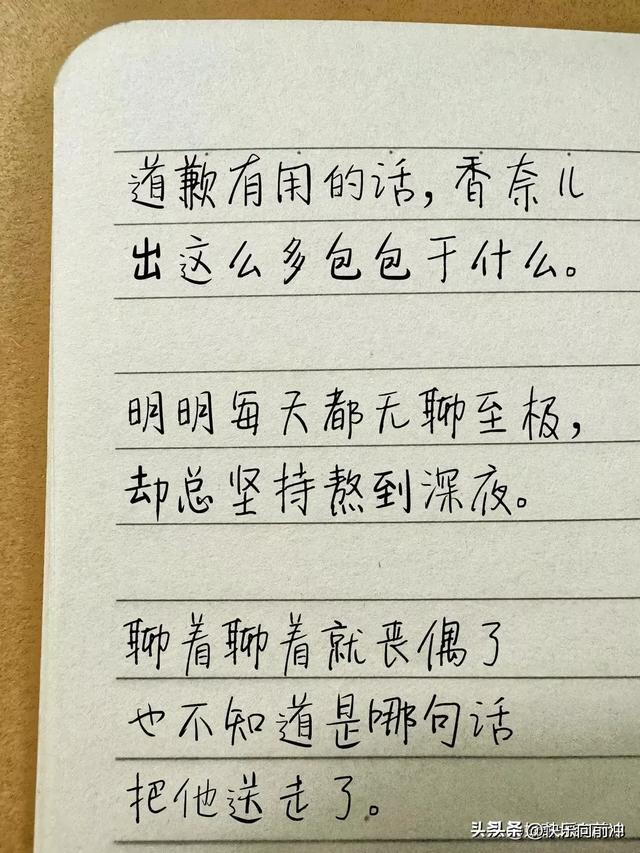 道歉有用的话，香奈儿
出这么多包包干什么。
明明每天都无聊至极，
却总坚持熬到深夜。
聊着聊着就丧偶了
也不知道是哪句话
把他送走了。
头条 @快乐向前冲